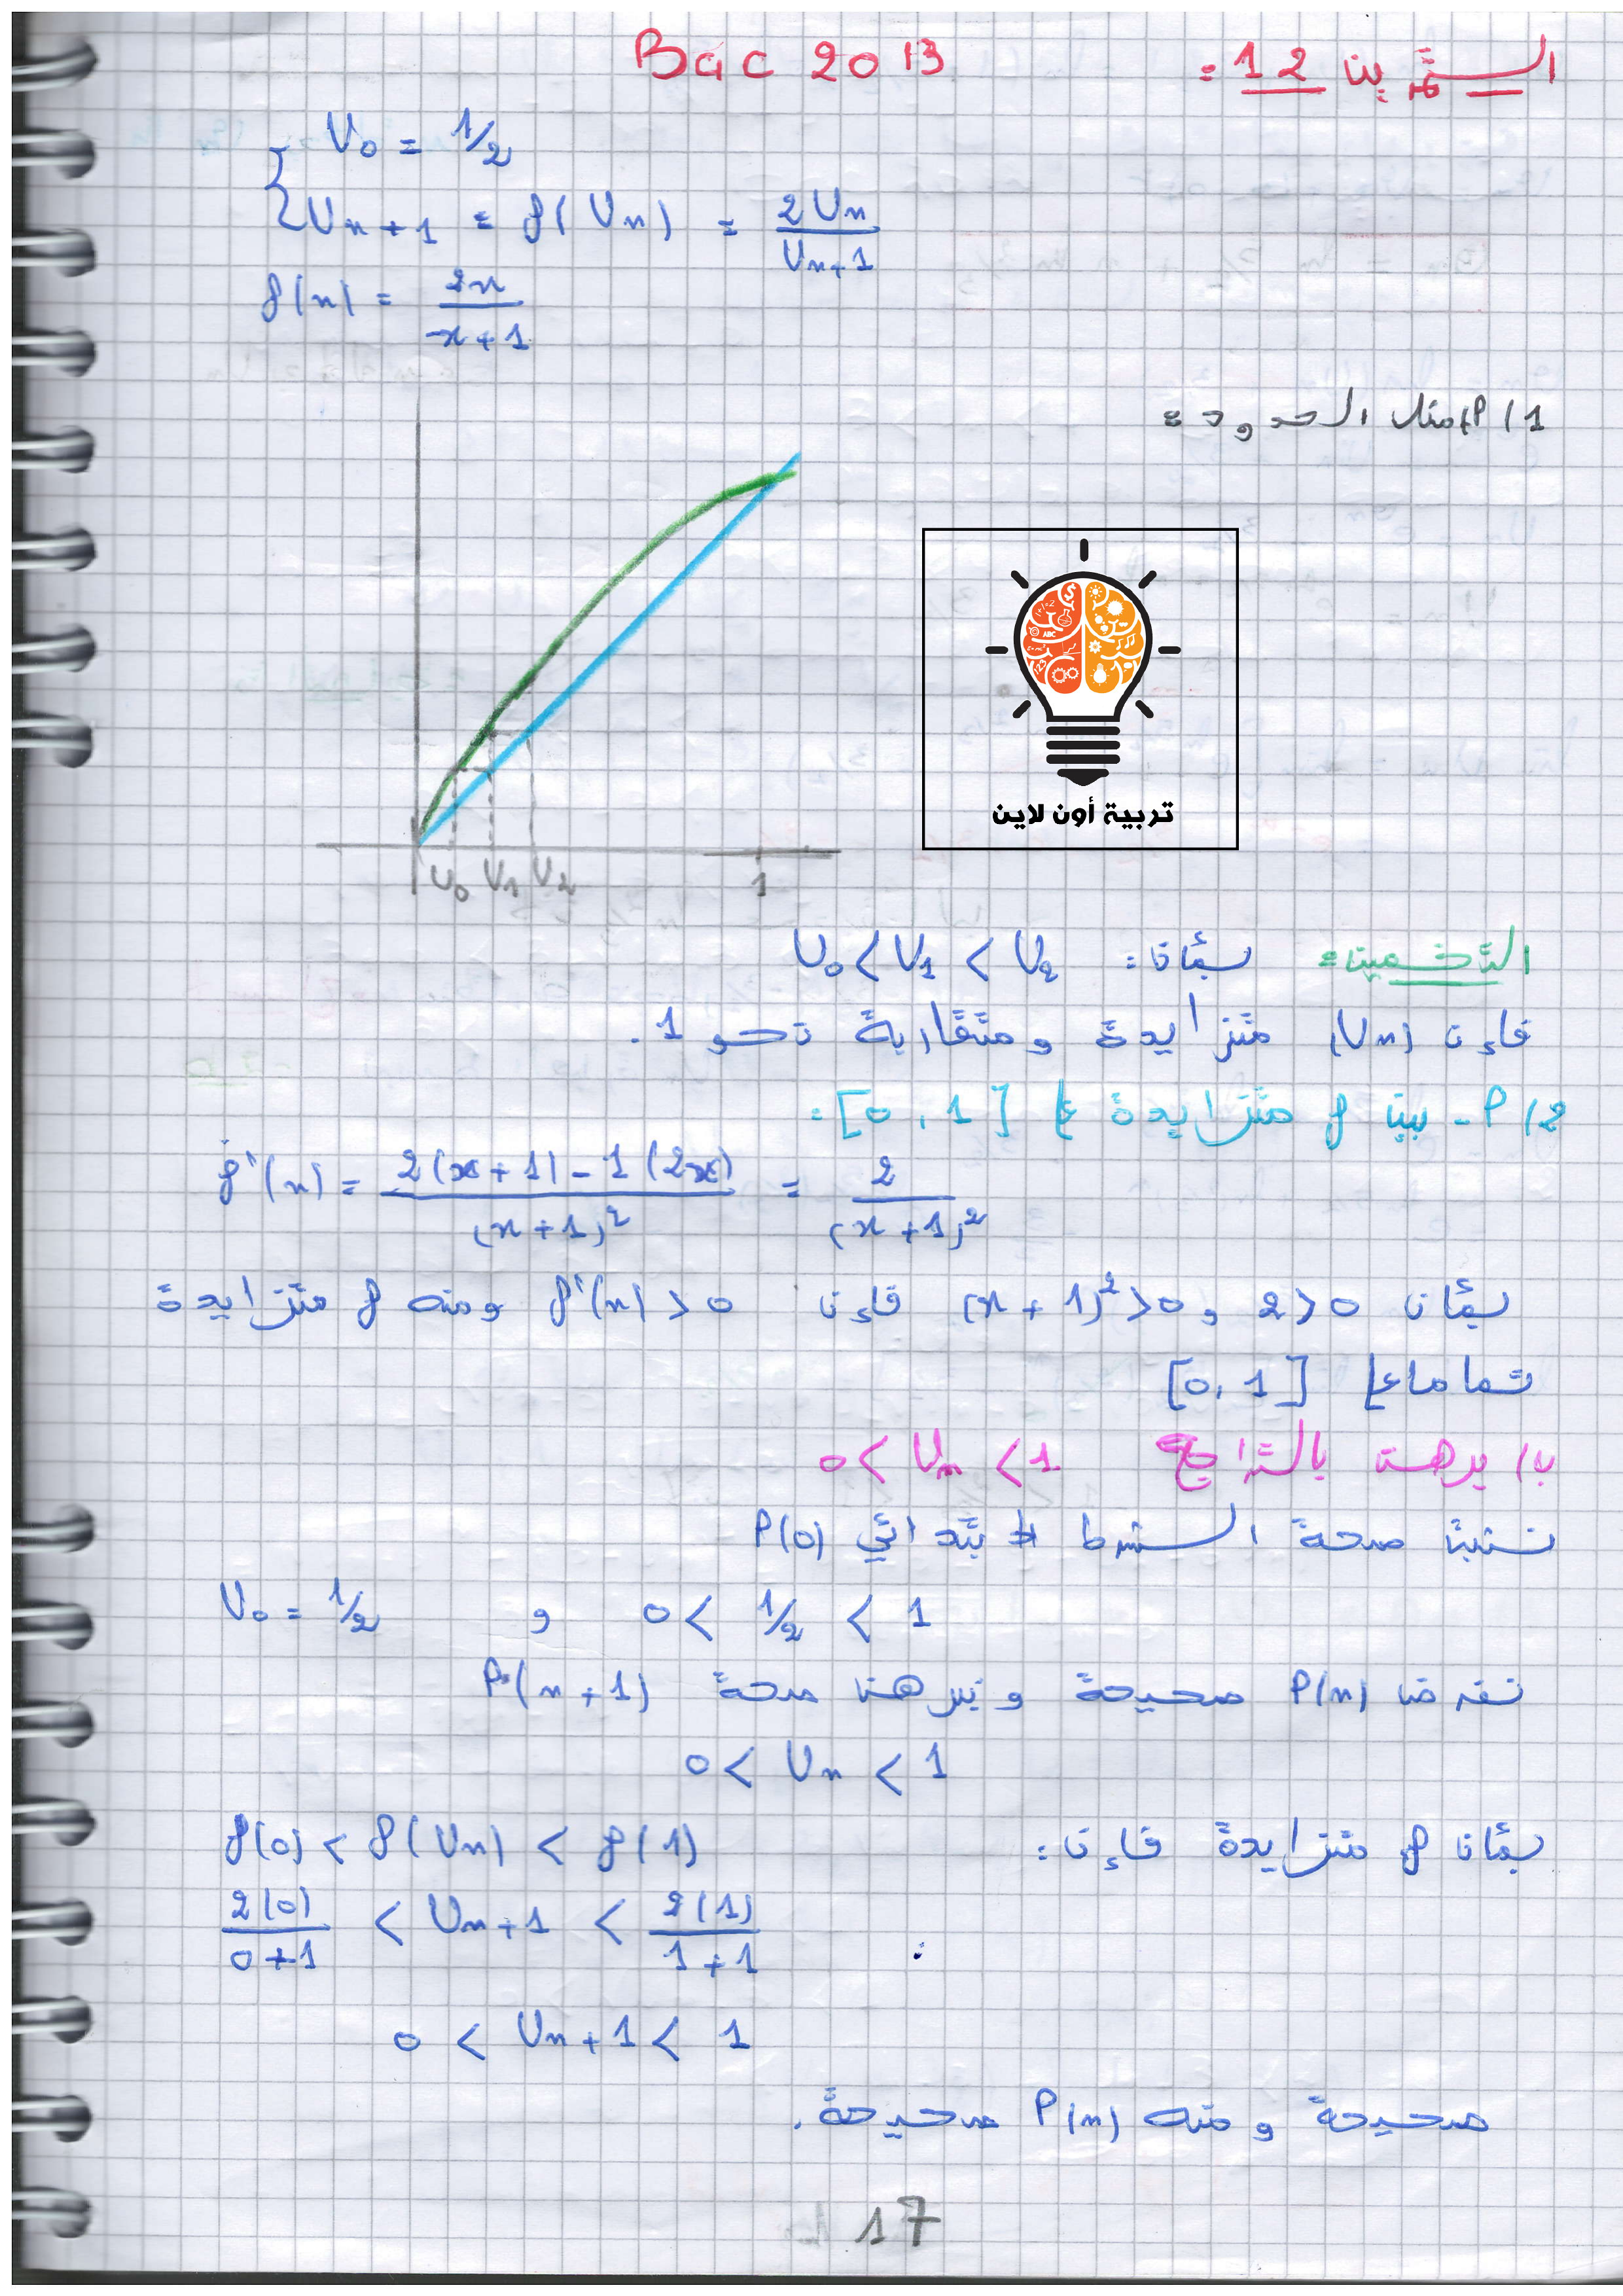 التمرين 12 : Bac 2013
U₀ = 1/2
Uₙ₊₁ = f(Uₙ) = 2Uₙ / Uₙ+1
f(x) = 2x / x+1
1/ أ/ مثل الحدود :
تربية أون لاين
U₀ U₁ U₂ 1
التخمين : بمأن : U₀ < U₁ < U₂
فإن (Uₙ) متزايدة ومتقاربة نحو 1.
2/ أ - بين f متزايدة على [0, 1] :
f'(x) = 2(x+1) - 1(2x) / (x+1)² = 2 / (x+1)²
بمأن 2>0 و (x+1)²>0 فإن f'(x)>0 ومنه f متزايدة
تماما على [0, 1]
ب/ برهن بالتراجع 0 < Uₙ < 1
نثبت صحة الشرط الابتدائي P(0)
U₀ = 1/2 و 0 < 1/2 < 1
نفرض P(n) صحيحة ونبرهن صحة P(n+1)
0 < Uₙ < 1
بمأن f متزايدة فإن : f(0) < f(Uₙ) < f(1)
2(0) / 0+1 < Uₙ₊₁ < 2(1) / 1+1
0 < Uₙ₊₁ < 1
صحيحة ومنه P(n) صحيحة.
17